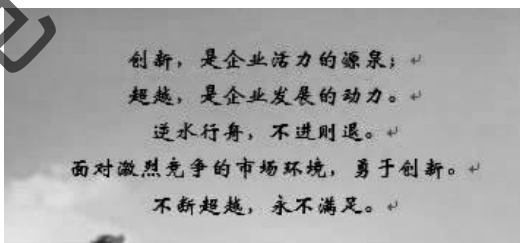 创新，是企业活力的源泉；
超越，是企业发展的动力。
逆水行舟，不进则退。
面对激烈竞争的市场环境，勇于创新。
不断超越，永不满足。